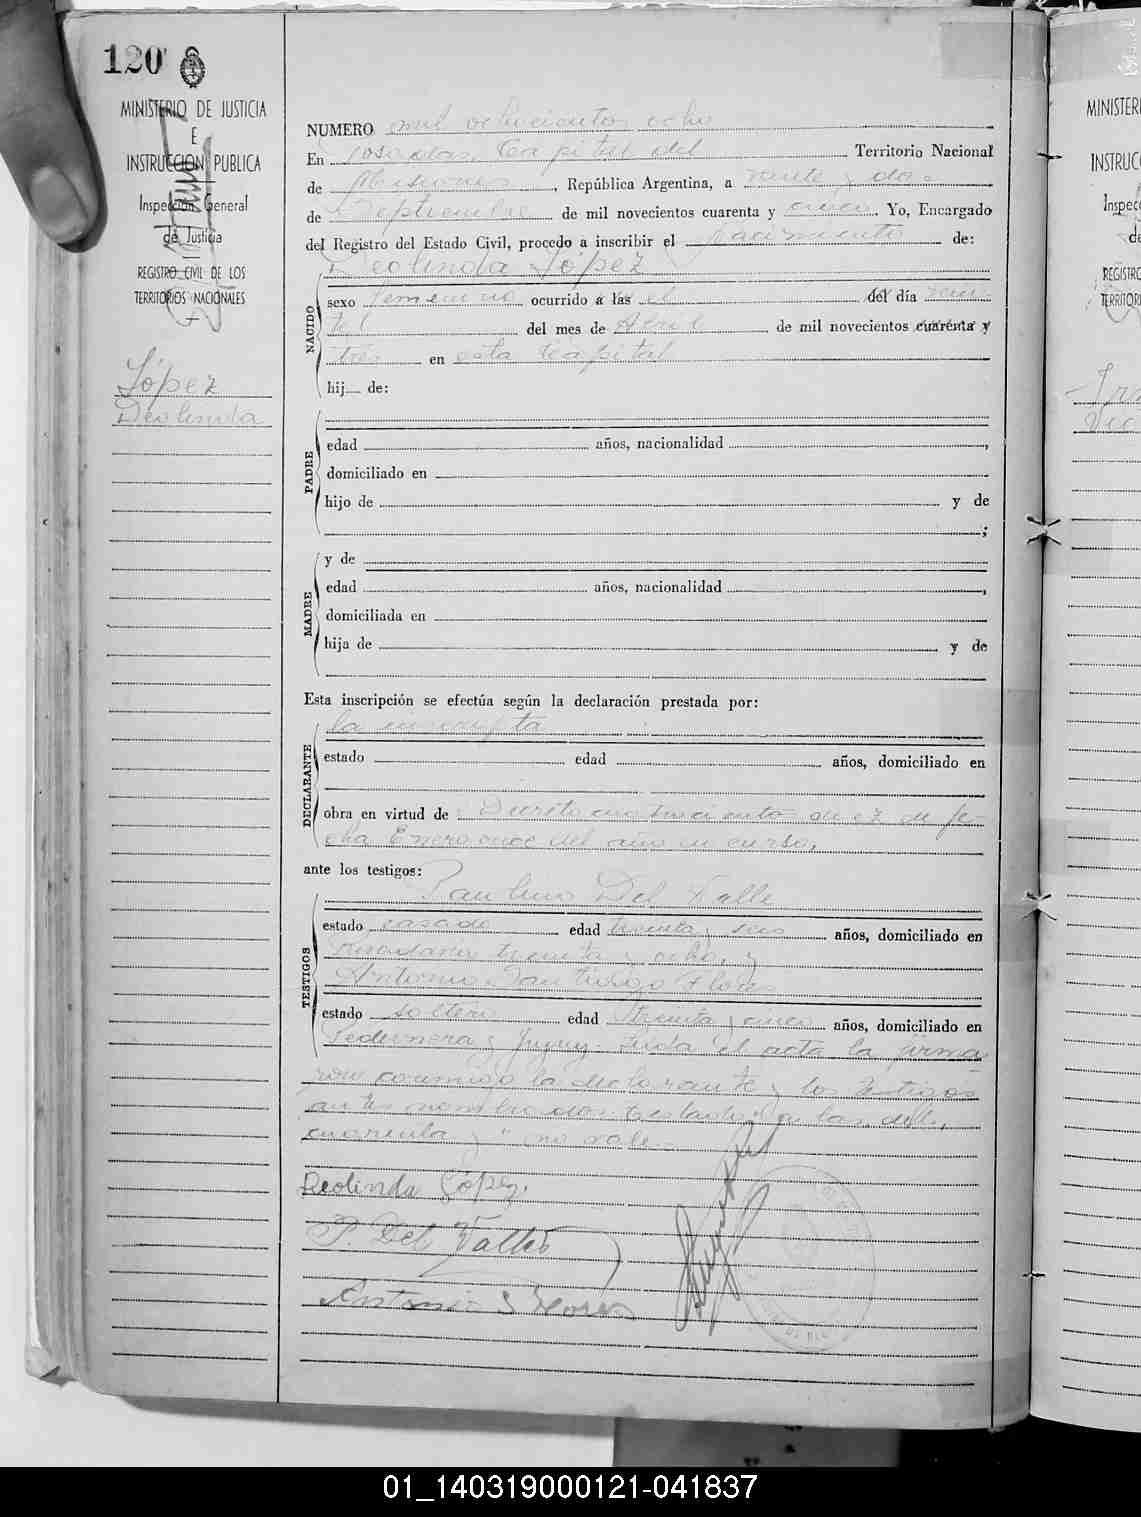 120
MINISTERIO DE JUSTICIA
E
INSTRUCCION PUBLICA
Inspección General
de Justicia
REGISTRO CIVIL DE LOS
TERRITORIOS NACIONALES
López
Deolinda
NUMERO mil ochocientos ocho
En Posadas, Capital del Territorio Nacional
de Misiones, República Argentina, a veinte y dos
de Septiembre de mil novecientos cuarenta y cinco. Yo, Encargado
del Registro del Estado Civil, procedo a inscribir el nacimiento de:
NACIDO
Deolinda López
sexo femenino ocurrido a las el del día vein
te de mes de Abril de mil novecientos cuarenta y
tres en esta Capital
hij de:
PADRE
edad años, nacionalidad ,
domiciliado en
hijo de y de
;
MADRE
y de
edad años, nacionalidad ,
domiciliada en
hija de y de
Esta inscripción se efectúa según la declaración prestada por:
DECLARANTE
la inscripta
estado edad años, domiciliado en
obra en virtud de Decreto de fe-
cha Enero once del año en curso,
ante los testigos:
TESTIGOS
Paulino Del Valle
estado casado edad treinta y seis años, domiciliado en
Rivadavia treinta y ocho, y
Antonio Santiago Flores
estado soltero edad treinta y cinco años, domiciliado en
Pedernera y Jujuy. Leida el acta la firma
ron conmigo la declarante y los testigos
antes nombrados. Testado: "a las, del,
cuarenta y" no vale.
Deolinda López.
P. Del Valle
Antonio S Flores
MINISTER
INSTRUCC
Inspec
de
REGISTRO
TERRITOR
01_140319000121-041837